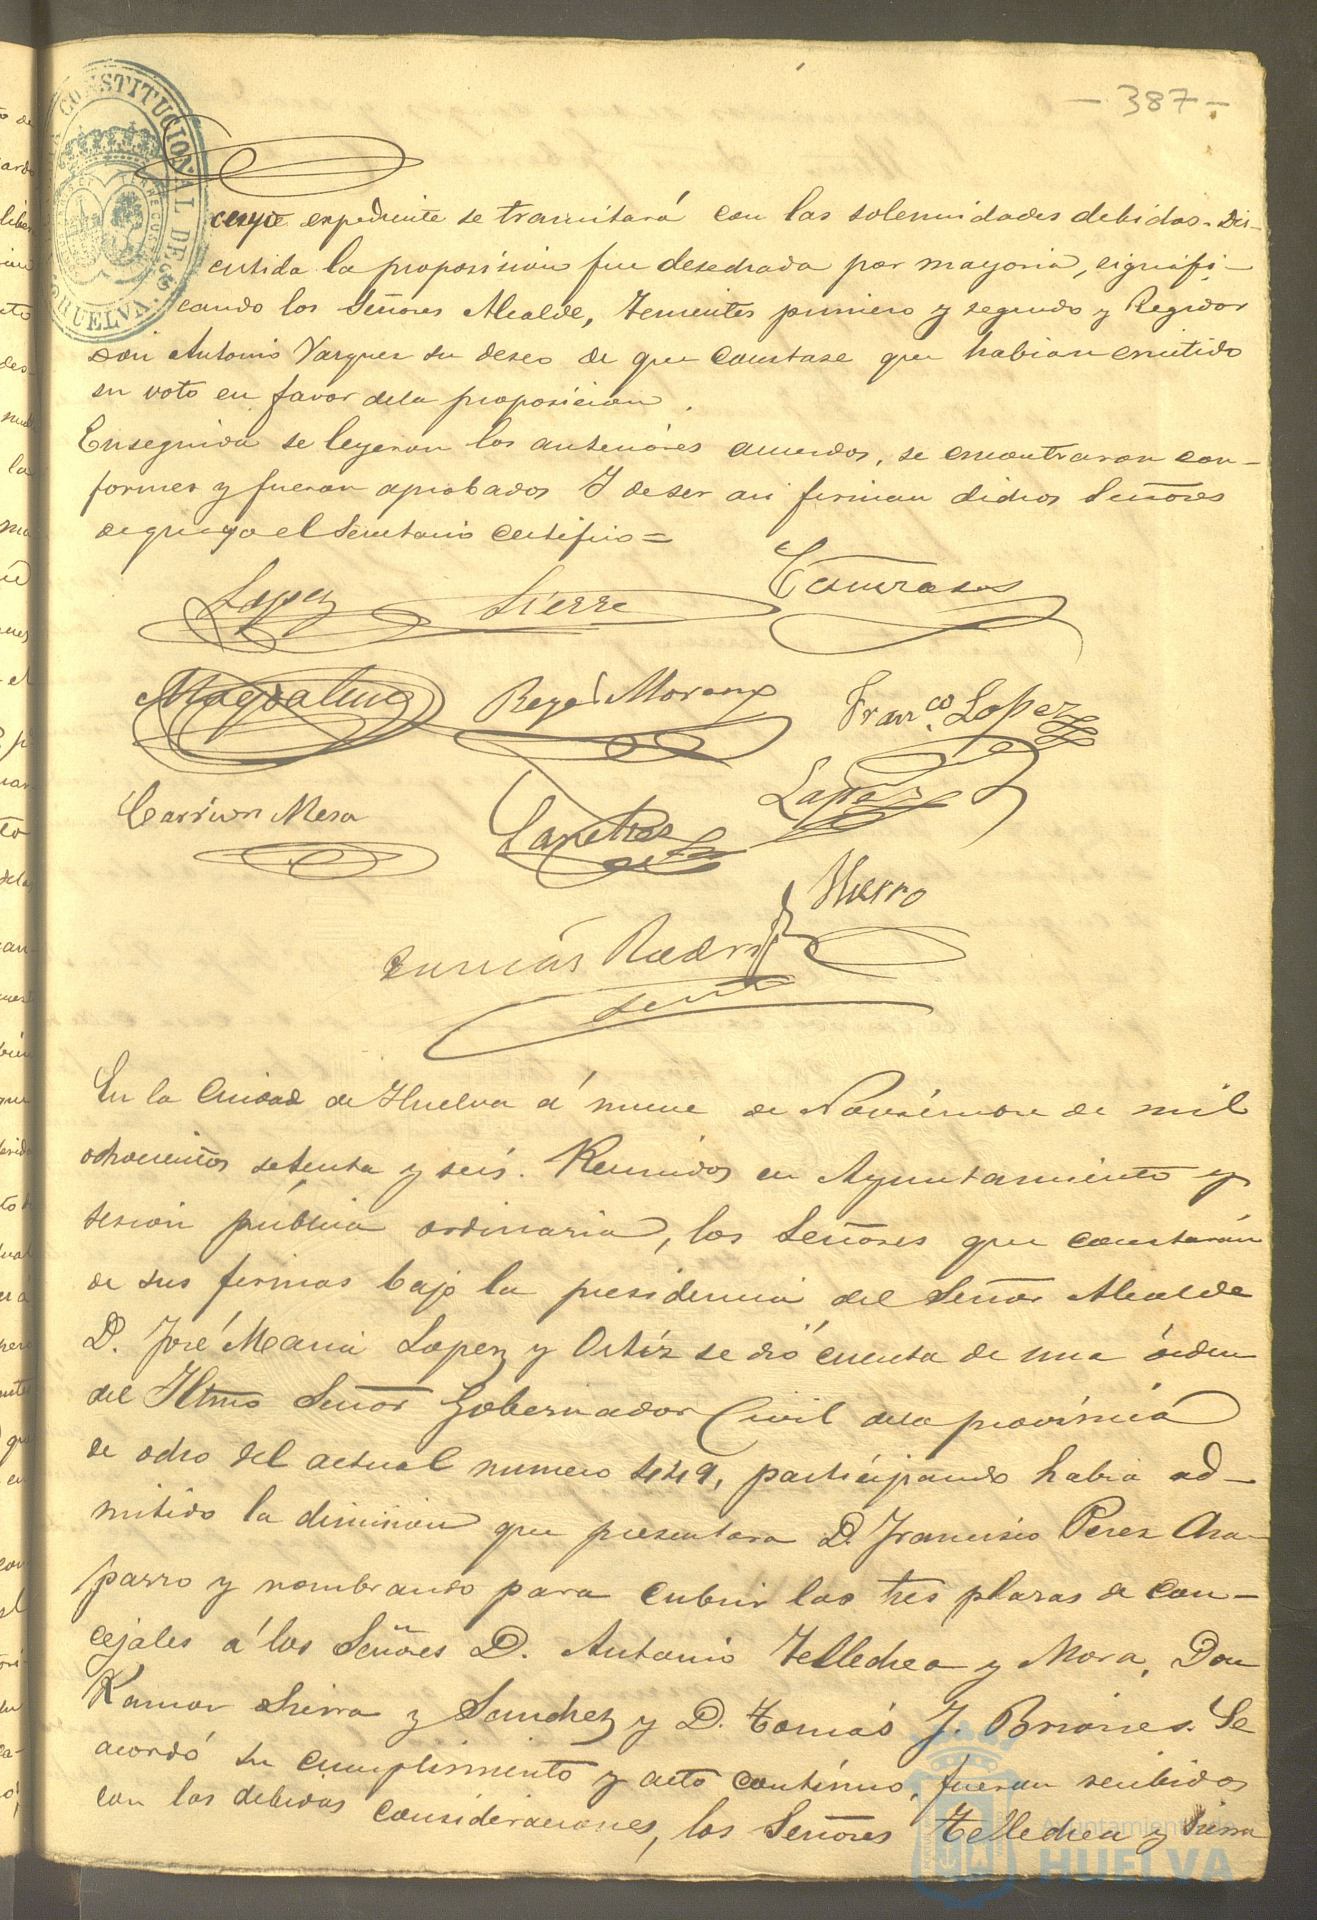 - 387 -
CONSTITUCIONAL DE HUELVA
cuyo expediente se tramitará con las solemnidades debidas. Dis-
cutida la proposicion fue desechada por mayoria, significi-
cando los Señores Alcalde, Tenientes primero y segundo y Regidor
Don Antonio Vazquez su deseo de que constase que habian emitido
su voto en favor dela proposicion.
Enseguida se leyeron los anteriores acuerdos, se encontraron con-
formes y fueron aprobados Y de ser asi firman dichos Señores
deque yo el Secretario certifico =
Lopez Sierre
Magdalena Reyes Moreno Franco. Lopez
Carrion Mesa
Hierro
Tomás Rodri
En la Ciudad de Huelva á nueve de Noviembre de mil
ochocientos setenta y seis. Reunidos en Ayuntamiento y
sesion pública ordinaria, los Señores que constarán
de sus firmas bajo la presidencia del Señor Alcalde
D. José Maria Lopez y Ortiz se dió cuenta de una órden
del Iltmo Señor Gobernador Civil dela provincia
de ocho del actual numero 449, participando habia ad-
mitido la dimision que presentara D. Francisco Perez
parro y nombrando para cubrir las tres plazas de con-
cejales á los Señores D. Antonio Tellechea y Mora, Don
Ramon Sierra y Sanchez y D. Tomás J. Briones. Se
acordó su cumplimiento y acto contínuo, fueron recibidos
con las debidas consideraciones, los Señores Tellechea y Sierra
Ayuntamiento de
HUELVA